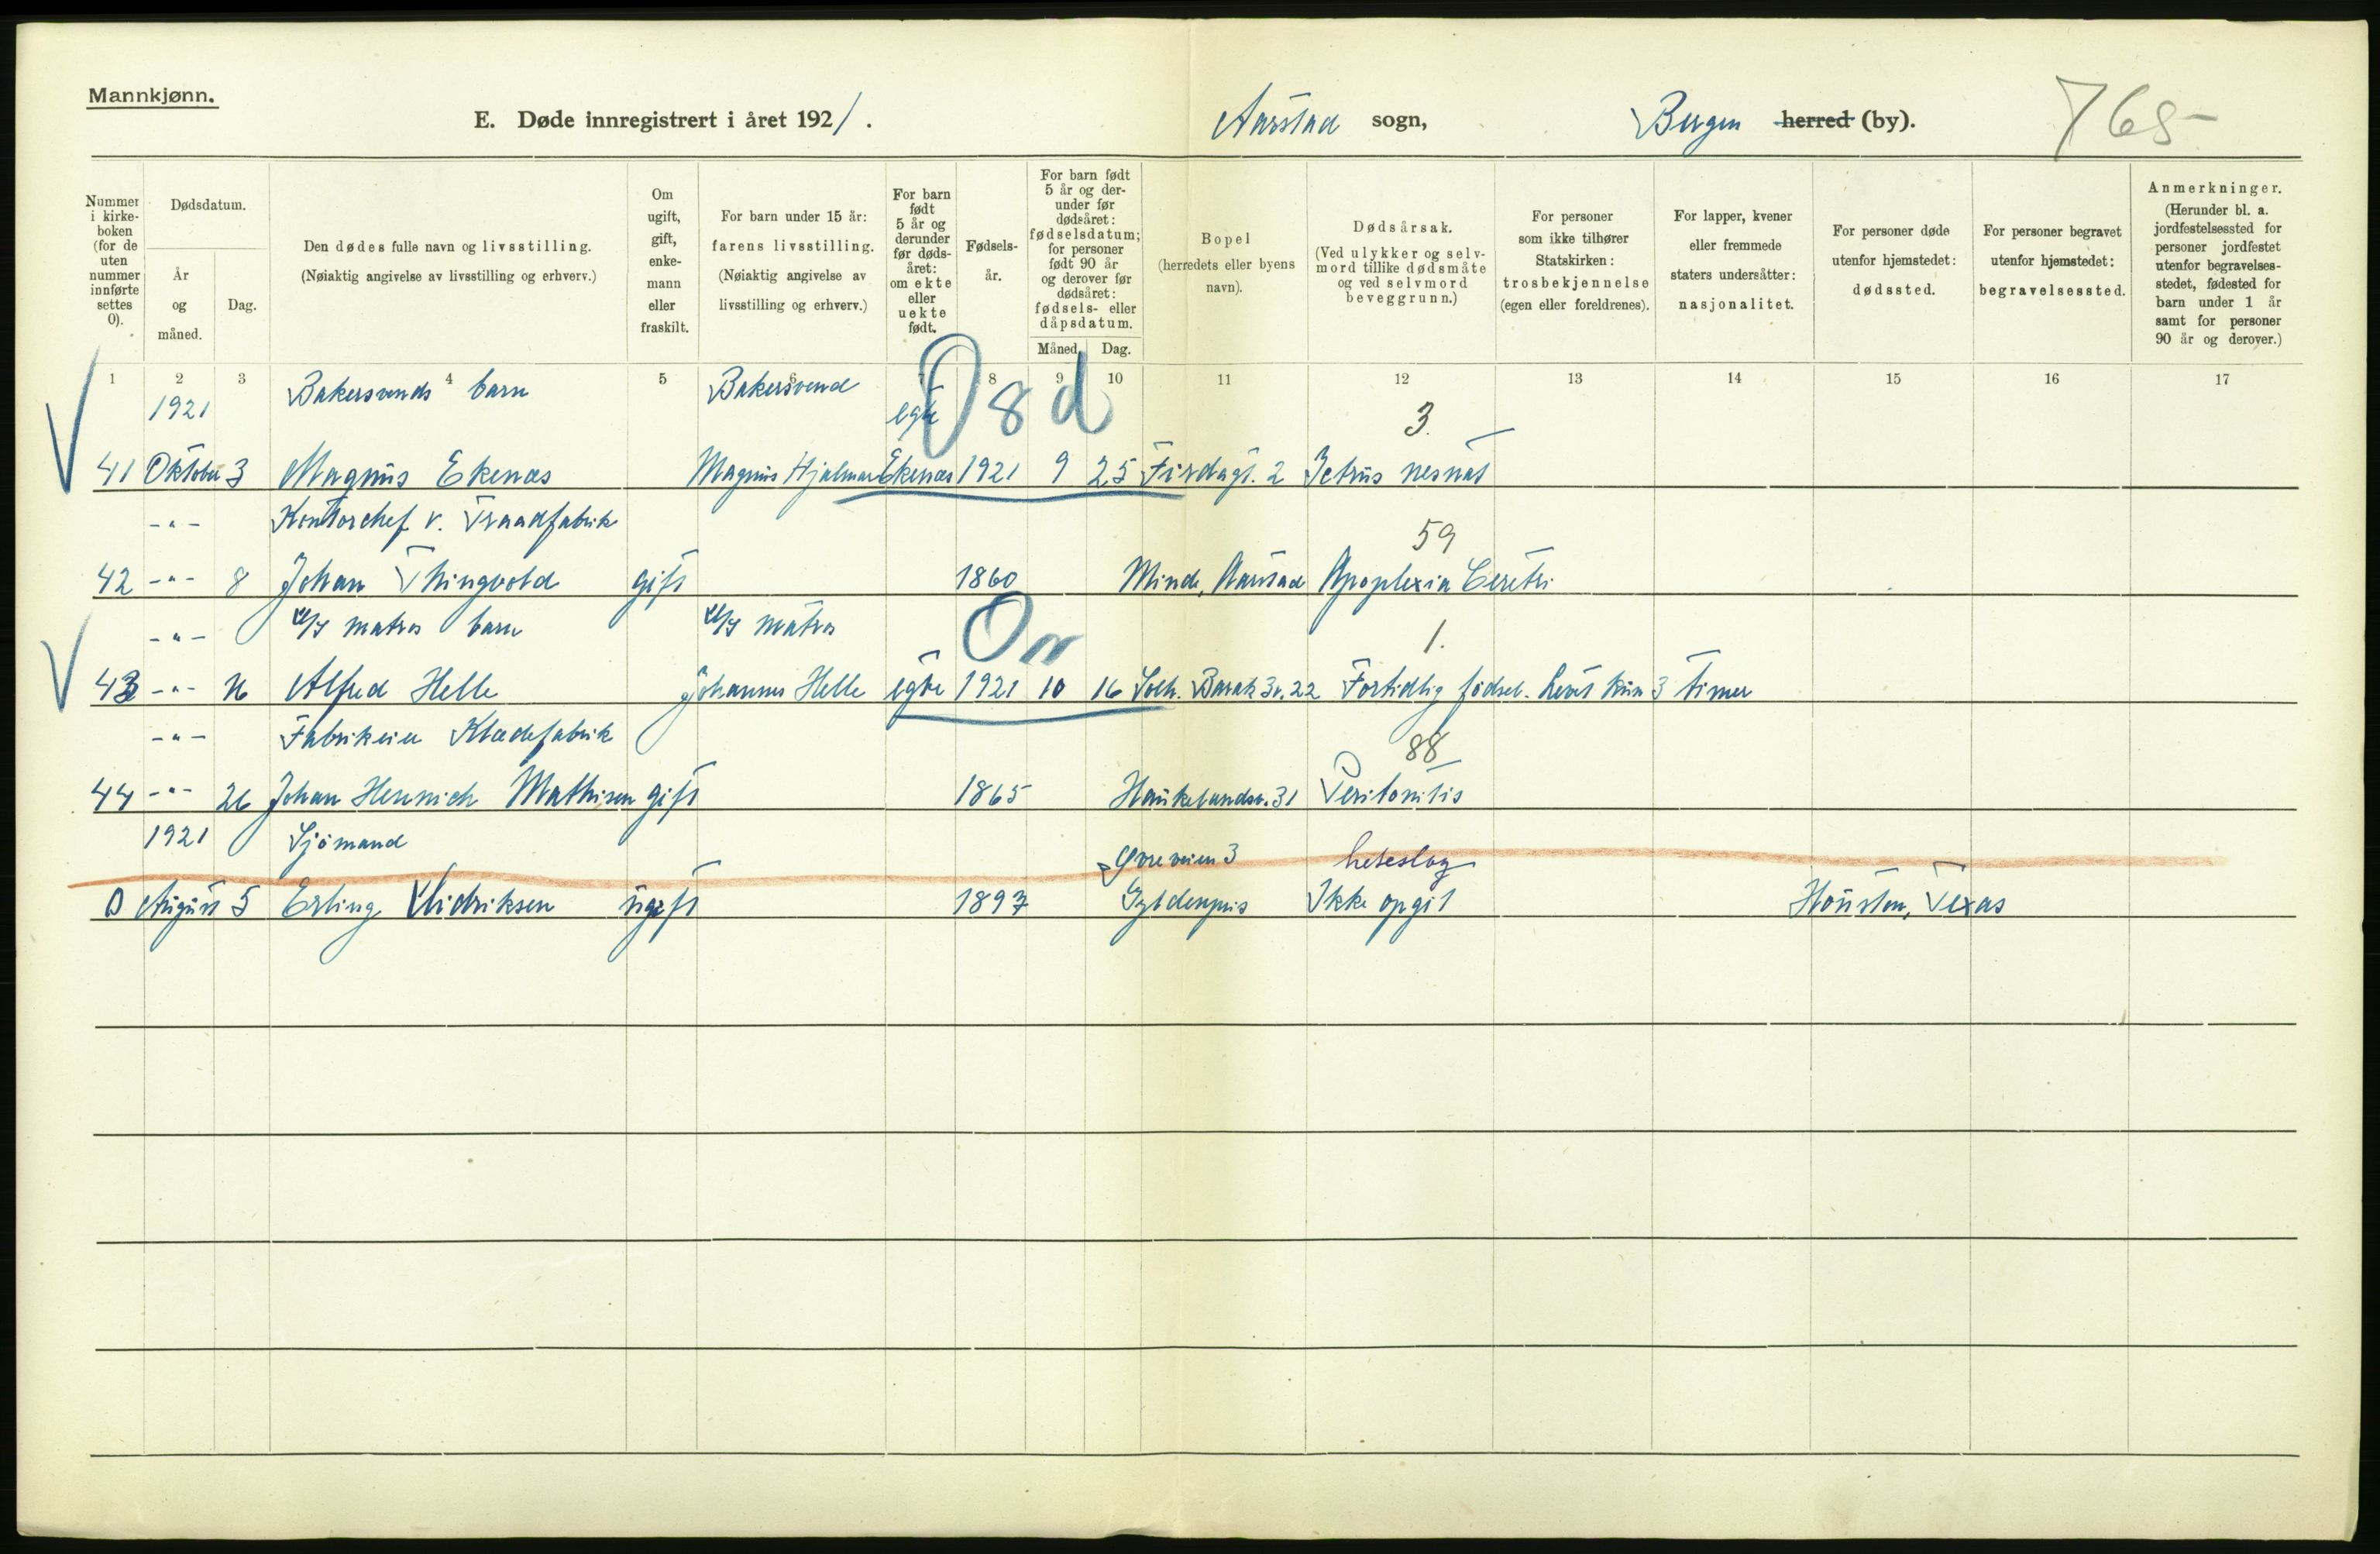 Mannkjønn.
E. Døde innregistrert i året 1921.
Aarstad sogn,
Bergen herred (by).
765-
Nummer i kirke- boken (for de uten nummer innførte settes 0).
Dødsdatum.
År og måned.
Dag.
Den dødes fulle navn og livsstilling.
(Nøiaktig angivelse av livsstilling og erhverv.)
Om ugift, gift, enke- mann eller fraskilt.
For barn under 15 år: farens livsstilling.
(Nøiaktig angivelse av livsstilling og erhverv.)
For barn født 5 år og derunder før døds- året: om ekte eller uekte født.
Fødsels- år.
For barn født 5 år og der- under før dødsåret: fødselsdatum; for personer født 90 år og derover før dødsåret: fødsels- eller dåpsdatum.
Måned. Dag.
Bopel
(herredets eller byens navn).
Dødsårsak.
(Ved ulykker og selv- mord tillike dødsmåte og ved selvmord beveggrunn.)
For personer som ikke tilhører Statskirken: trosbekjennelse
(egen eller foreldrenes).
For lapper, kvener eller fremmede staters undersåtter: nasjonalitet.
For personer døde utenfor hjemstedet: dødssted.
For personer begravet utenfor hjemstedet: begravelsessted.
Anmerkninger.
(Herunder bl. a. jordfestelsessted for personer jordfestet utenfor begravelses- stedet, fødested for barn under 1 år samt for personer 90 år og derover.)
1 2 3 4 5 6 7 8 9 10 11 12 13 14 15 16 17
1921 Bakersvends barn Bakersvend egte 8 d 3.
41 Oktober 3 Magnus Ekenæs Magnus Hjalmar Ekenæs 1921 9 25 Firdagt. 2 Ictrus nesnat
-"- Kontorchef v. Traadfabrik 59
42 -"- 8 Johan Thingvold gift 1860 Minde, Aarstad Apoplexia Cerebri
-"- matros barn matros 1.
43 -"- 16 Alfred Helle Johannes Helle egte 1921 10 16 Solh. Barak 3v. 22 Fortidlig födsel. Levet kun 3 timer
-"- Fabrikeier Klædefabrik 88
44 -"- 26 Johan Henrich Mathisen gift 1865 Haukelandsv. 31 Peritonitis
1921 Sjömand Øvreveien 3 heteslag
0 August 5 Erling Didriksen ugift 1897 Gyldenpris Ikke opgit Houston, Texas